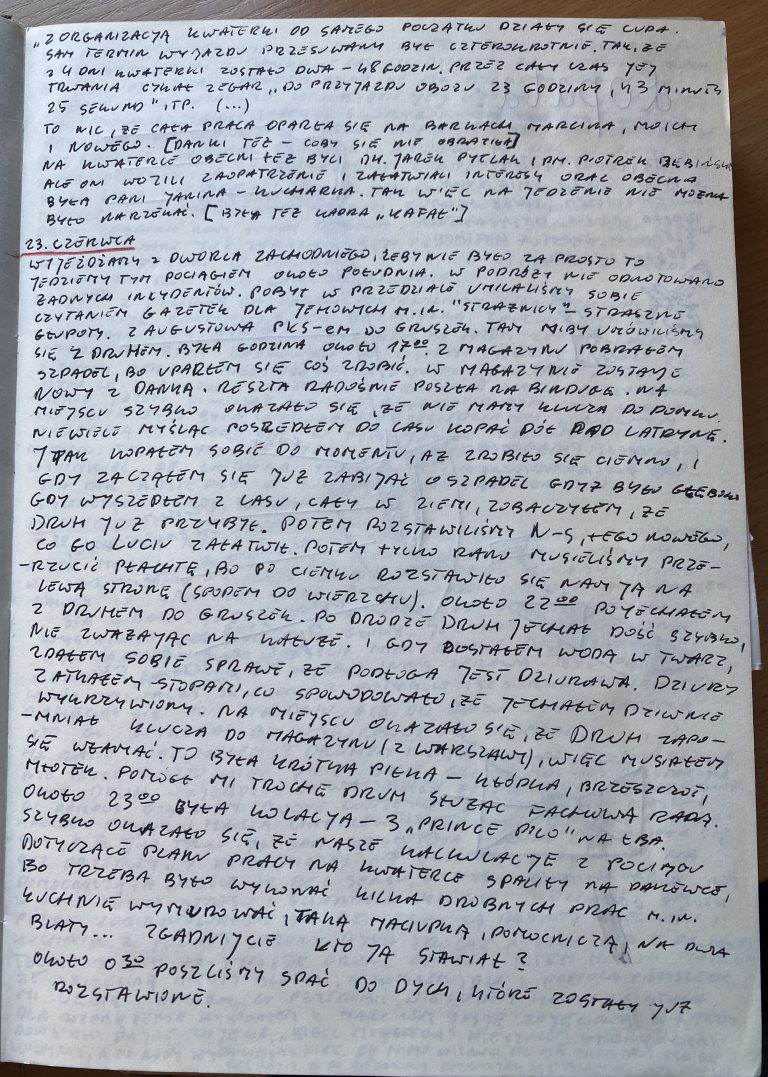 "Z ORGANIZACJĄ KWATERKI OD SAMEGO POCZĄTKU DZIAŁY SIĘ CUDA.
SAM TERMIN WYJAZDU PRZESUWANY BYŁ CZTEROKROTNIE. TAK, ŻE
Z 4 DNI KWATERKI ZOSTAŁO DWA - 48 GODZIN. PRZEZ CAŁY CZAS JEJ
TRWANIA CYKAŁ ZEGAR „DO PRZYJAZDU OBOZU 23 GODZINY, 43 MINUTY
25 SEKUND", ITP. (...)
TO NIC, ŻE CAŁA PRACA OPARŁA SIĘ NA BARKACH MARCINA, MOICH
I NOWEGO. [DANKI TEŻ - COBY SIĘ NIE OBRAZIŁA]
NA KWATERCE OBECNI TEŻ BYLI DH. JAREK PYTLAK I PM. PIOTREK
ALE ONI WOZILI ZAOPATRZENIE I ZAŁATWIALI INTERESY ORAZ OBECNA
BYŁA PANI JANINA - KUCHARKA. TAK WIĘC NA JEDZENIE NIE MOŻNA
BYŁO NARZEKAĆ. [BYŁA TEŻ KADRA „KAFAŁ"]
23. CZERWCA
WYJEŻDŻAMY Z DWORCA ZACHODNIEGO, ŻEBY NIE BYŁO ZA PROSTO TO
JEDZIEMY TYM POCIĄGIEM OKOŁO POŁUDNIA. W PODRÓŻY NIE ODNOTOWANO
ŻADNYCH INCYDENTÓW. POBYT W PRZEDZIALE UMILALIŚMY SOBIE
CZYTANIEM GAZETEK DLA JEHOWYCH M.IN. "STRAŻNICY" - STRASZNE
GŁUPOTY. Z AUGUSTOWA PKS-EM DO GRUSZEK. TAM NIBY UMÓWILIŚMY
SIĘ Z DRUHEM. BYŁA GODZINA OKOŁO 17⁰⁰. Z MAGAZYNU POBRAŁEM
SZPADEL, BO UPARŁEM SIĘ COŚ ZROBIĆ. W MAGAZYNIE ZOSTAJE
NOWY Z DANKĄ. RESZTA RADOŚNIE POSZŁA NA BINDUGĘ. NA
MIEJSCU SZYBKO OKAZAŁO SIĘ, ŻE NIE MAMY KLUCZA DO DOMKU.
NIEWIELE MYŚLĄC POSZEDŁEM DO LASU KOPAĆ DÓŁ POD LATRYNĘ.
I TAK KOPAŁEM SOBIE DO MOMENTU, AŻ ZROBIŁO SIĘ CIEMNO, I
GDY ZACZĄŁEM SIĘ JUŻ ZABIJAĆ O SZPADEL GDYŻ BYŁO GŁĘBOKO
GDY WYSZEDŁEM Z LASU, CAŁY W ZIEMI, ZOBACZYŁEM, ŻE
DRUH JUŻ PRZYBYŁ. POTEM ROZSTAWILIŚMY N-S, TEGO NOWEGO,
CO GO LUCIU ZAŁATWIŁ. POTEM TYLKO RANO MUSIELIŚMY PRZE-
-RZUCIĆ PŁACHTĘ, BO PO CIEMKU ROZSTAWIŁO SIĘ NAM JĄ NA
LEWĄ STRONĘ (SPODEM DO WIERZCHU). OKOŁO 22⁰⁰ POJECHAŁEM
Z DRUHEM DO GRUSZEK. PO DRODZE DRUH JECHAŁ DOŚĆ SZYBKO,
NIE ZWAŻAJĄC NA KAŁUŻE. I GDY DOSTAŁEM WODĄ W TWARZ,
ZDAŁEM SOBIE SPRAWĘ, ŻE PODŁOGA JEST DZIURAWA. DZIURY
ZATKAŁEM STOPAMI, CO SPOWODOWAŁO, ŻE JECHAŁEM DZIWNIE
WYKRZYWIONY. NA MIEJSCU OKAZAŁO SIĘ, ŻE DRUH ZAPO-
-MNIAŁ KLUCZA DO MAGAZYNU (Z WARSZAWY), WIĘC MUSIAŁEM
SIĘ WŁAMAĆ. TO BYŁA KRÓTKA PIŁKA - KŁÓDKA, BRZESZCZOT,
MŁOTEK. POMÓGŁ MI TROCHĘ DRUH SŁUŻĄC FACHOWĄ RADĄ.
OKOŁO 23⁰⁰ BYŁA KOLACJA - 3 „PRINCE POLO" NA ŁBA.
SZYBKO OKAZAŁO SIĘ, ŻE NASZE KALKULACJE Z POCIĄGU
DOTYCZĄCE PLANU PRACY NA KWATERCE SPALIŁY NA PANEWCE,
BO TRZEBA BYŁO WYKONAĆ KILKA DROBNYCH PRAC M.IN.
KUCHNIĘ WYMUROWAĆ, TAKĄ MACIUPKĄ, POMOCNICZĄ, NA DWA
BLATY... ZGADNIJCIE KTO JĄ STAWIAŁ?
OKOŁO 0³⁰ POSZLIŚMY SPAĆ DO DYCH, KTÓRE ZOSTAŁY JUŻ
ROZSTAWIONE.